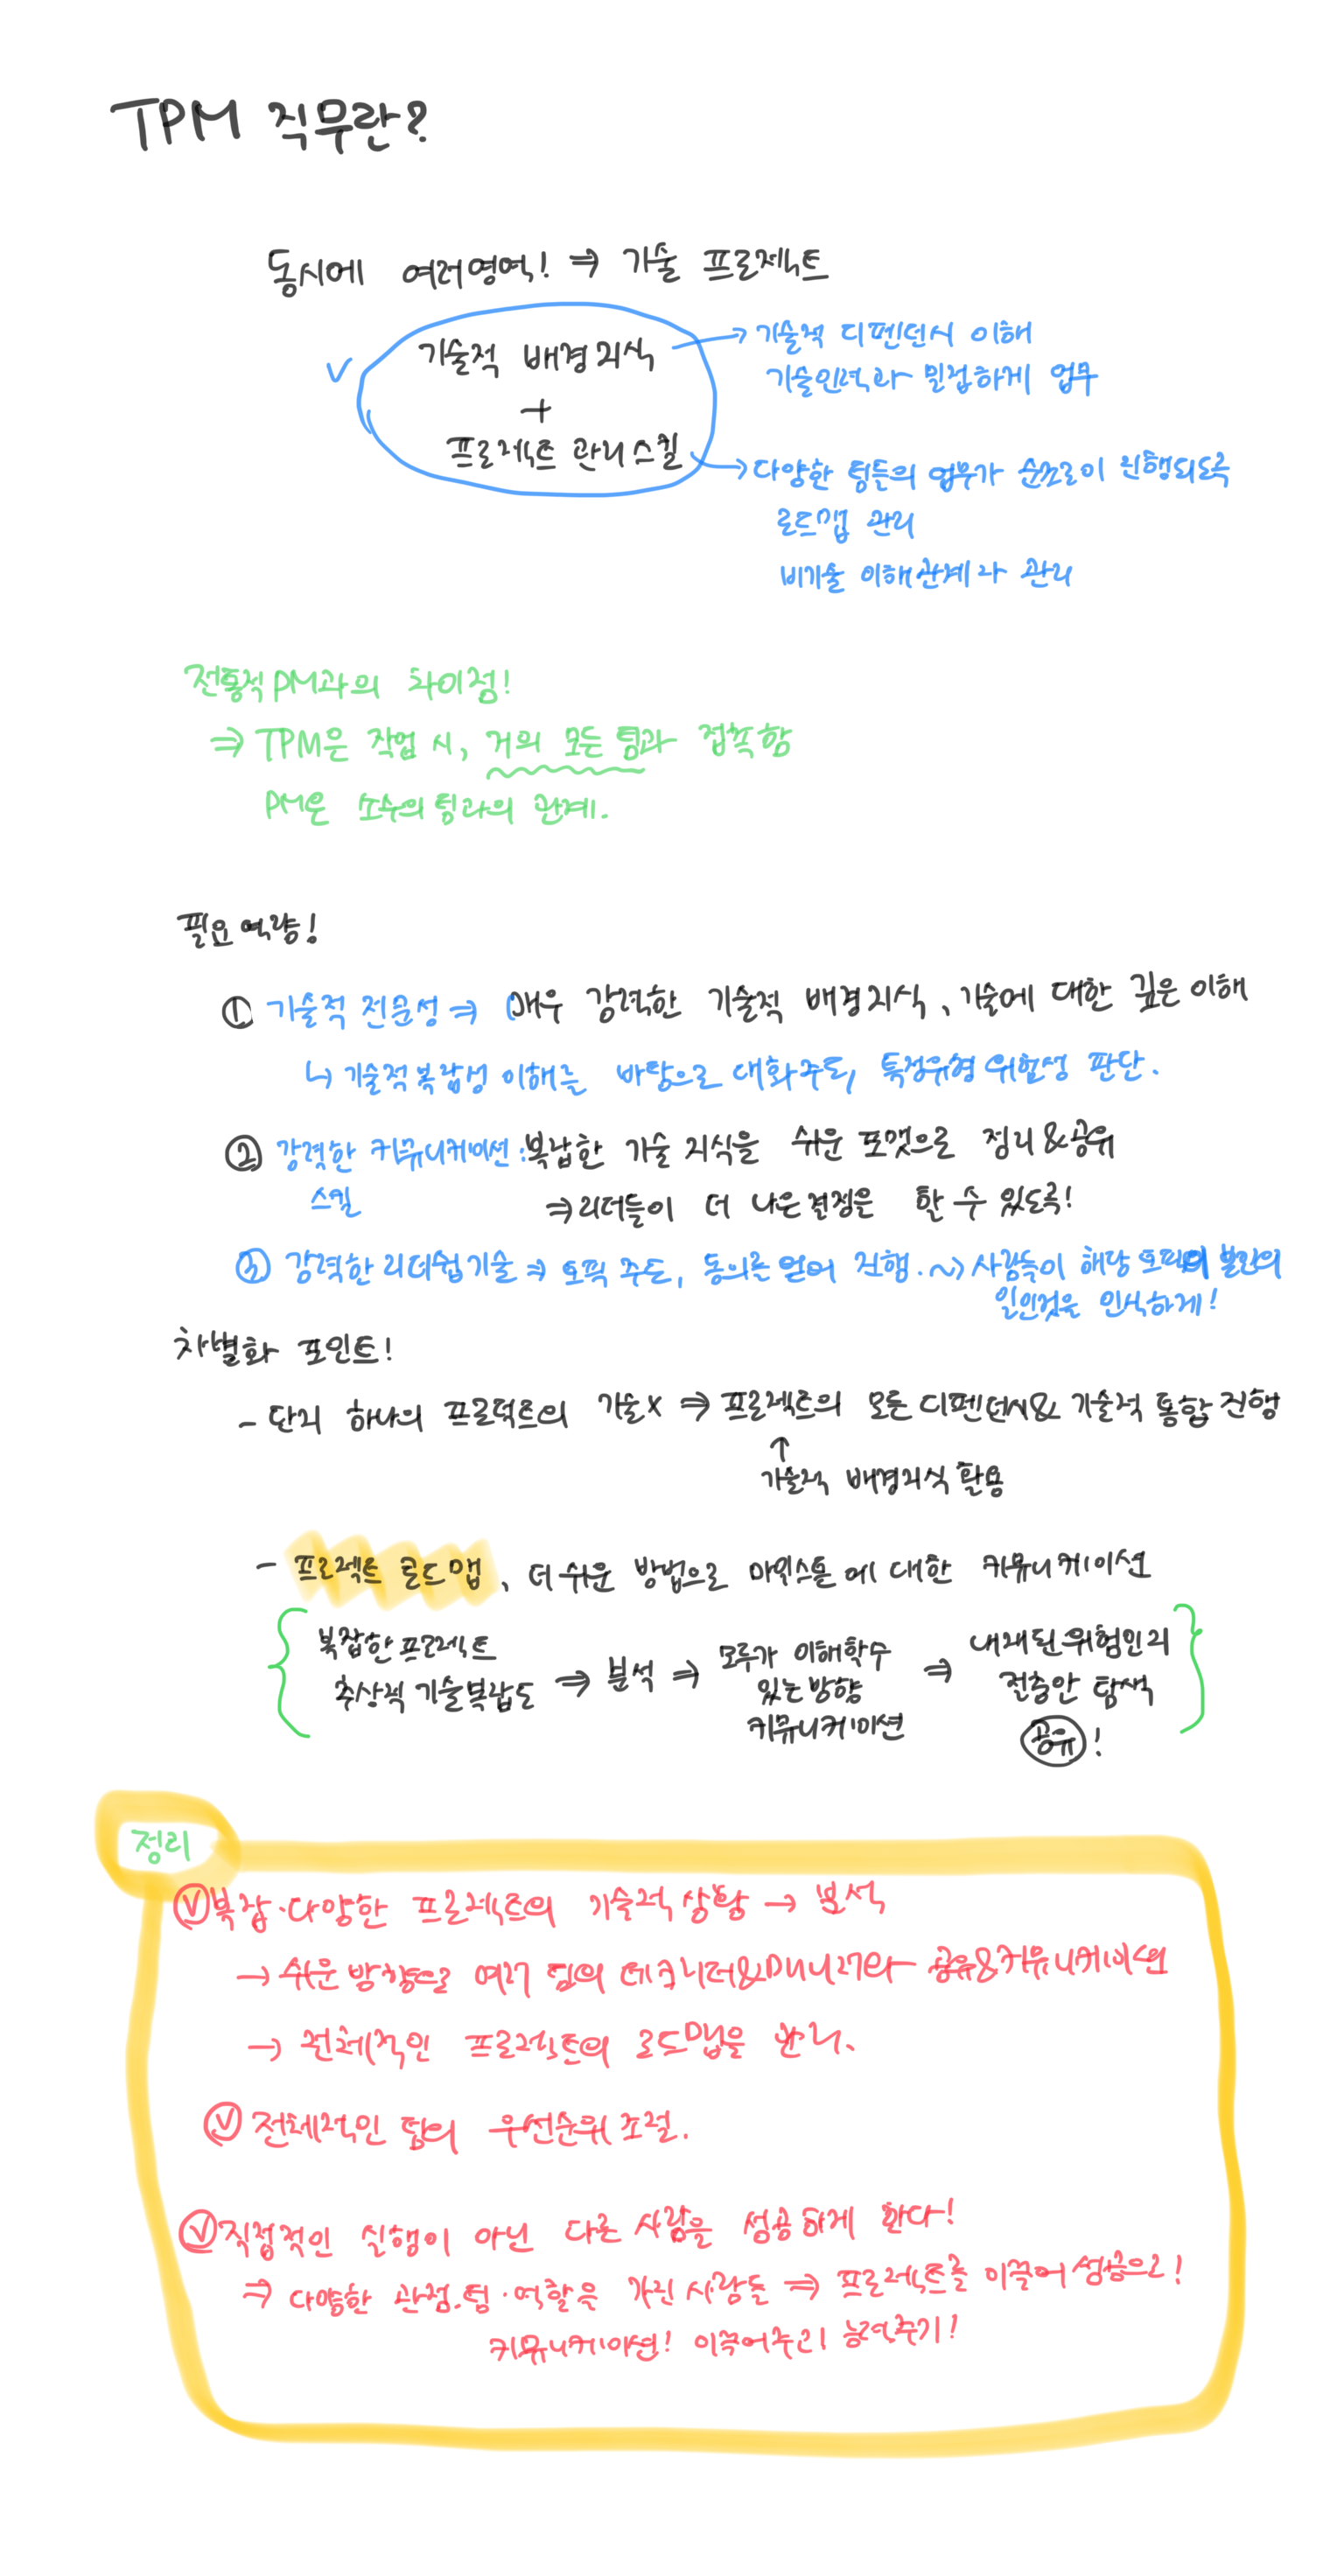 TPM 직무란?
동시에 여러영역! ⇒ 기술 프로젝트
✓ 기술적 배경지식
→ 기술적 디펜던시 이해
기술인력과 밀접하게 업무
+
프로젝트 관리스킬
→ 다양한 팀들의 업무가 순조로이 진행되도록
로드맵 관리
비기술 이해관계자 관리
전통적PM과의 차이점!
⇒ TPM은 작업 시, 거의 모든 팀과 접촉함
PM은 소수의 팀과의 관계.
필요역량!
① 기술적 전문성 ⇒ 매우 강력한 기술적 배경지식, 기술에 대한 깊은 이해
↳ 기술적복잡성 이해를 바탕으로 대화주도, 특정유형 위험성 판단.
② 강력한 커뮤니케이션 : 복잡한 기술 지식을 쉬운 포맷으로 정리&공유
스킬
⇒리더들이 더 나은결정을 할 수 있도록!
③ 강력한 리더쉽기술 ⇒ 토픽 주도, 동의를 얻어 진행. ~> 사람들이 해당 토픽의 본인의
일인것을 인식하게!
차별화 포인트!
- 단지 하나의 프로덕트의 기술x ⇒ 프로젝트의 모든 디펜던시& 기술적 통합 진행
↑
기술적 배경지식 활용
- 프로젝트 로드맵, 더 쉬운 방법으로 마일스톤에 대한 커뮤니케이션
복잡한프로젝트
추상적 기술복잡도 ⇒ 분석 ⇒
모두가 이해할수
있는방향
커뮤니케이션
⇒
내재된위험인지
절충안 탐색
공유!
정리
✓ 복잡·다양한 프로젝트의 기술적상황 → 분석
→ 쉬운 방향으로 여러 팀의 테크리더&매니저와 공유&커뮤니케이션
→ 전체적인 프로젝트의 로드맵을 관리.
✓ 전체적인 팀의 우선순위조절.
✓ 직접적인 실행이 아닌 다른 사람을 성공하게 한다!
⇒ 다양한 관점.팀.역할을 가진 사람들 ⇒ 프로젝트를 이끌어성공으로!
커뮤니케이션! 이끌어주기! 능력주기!